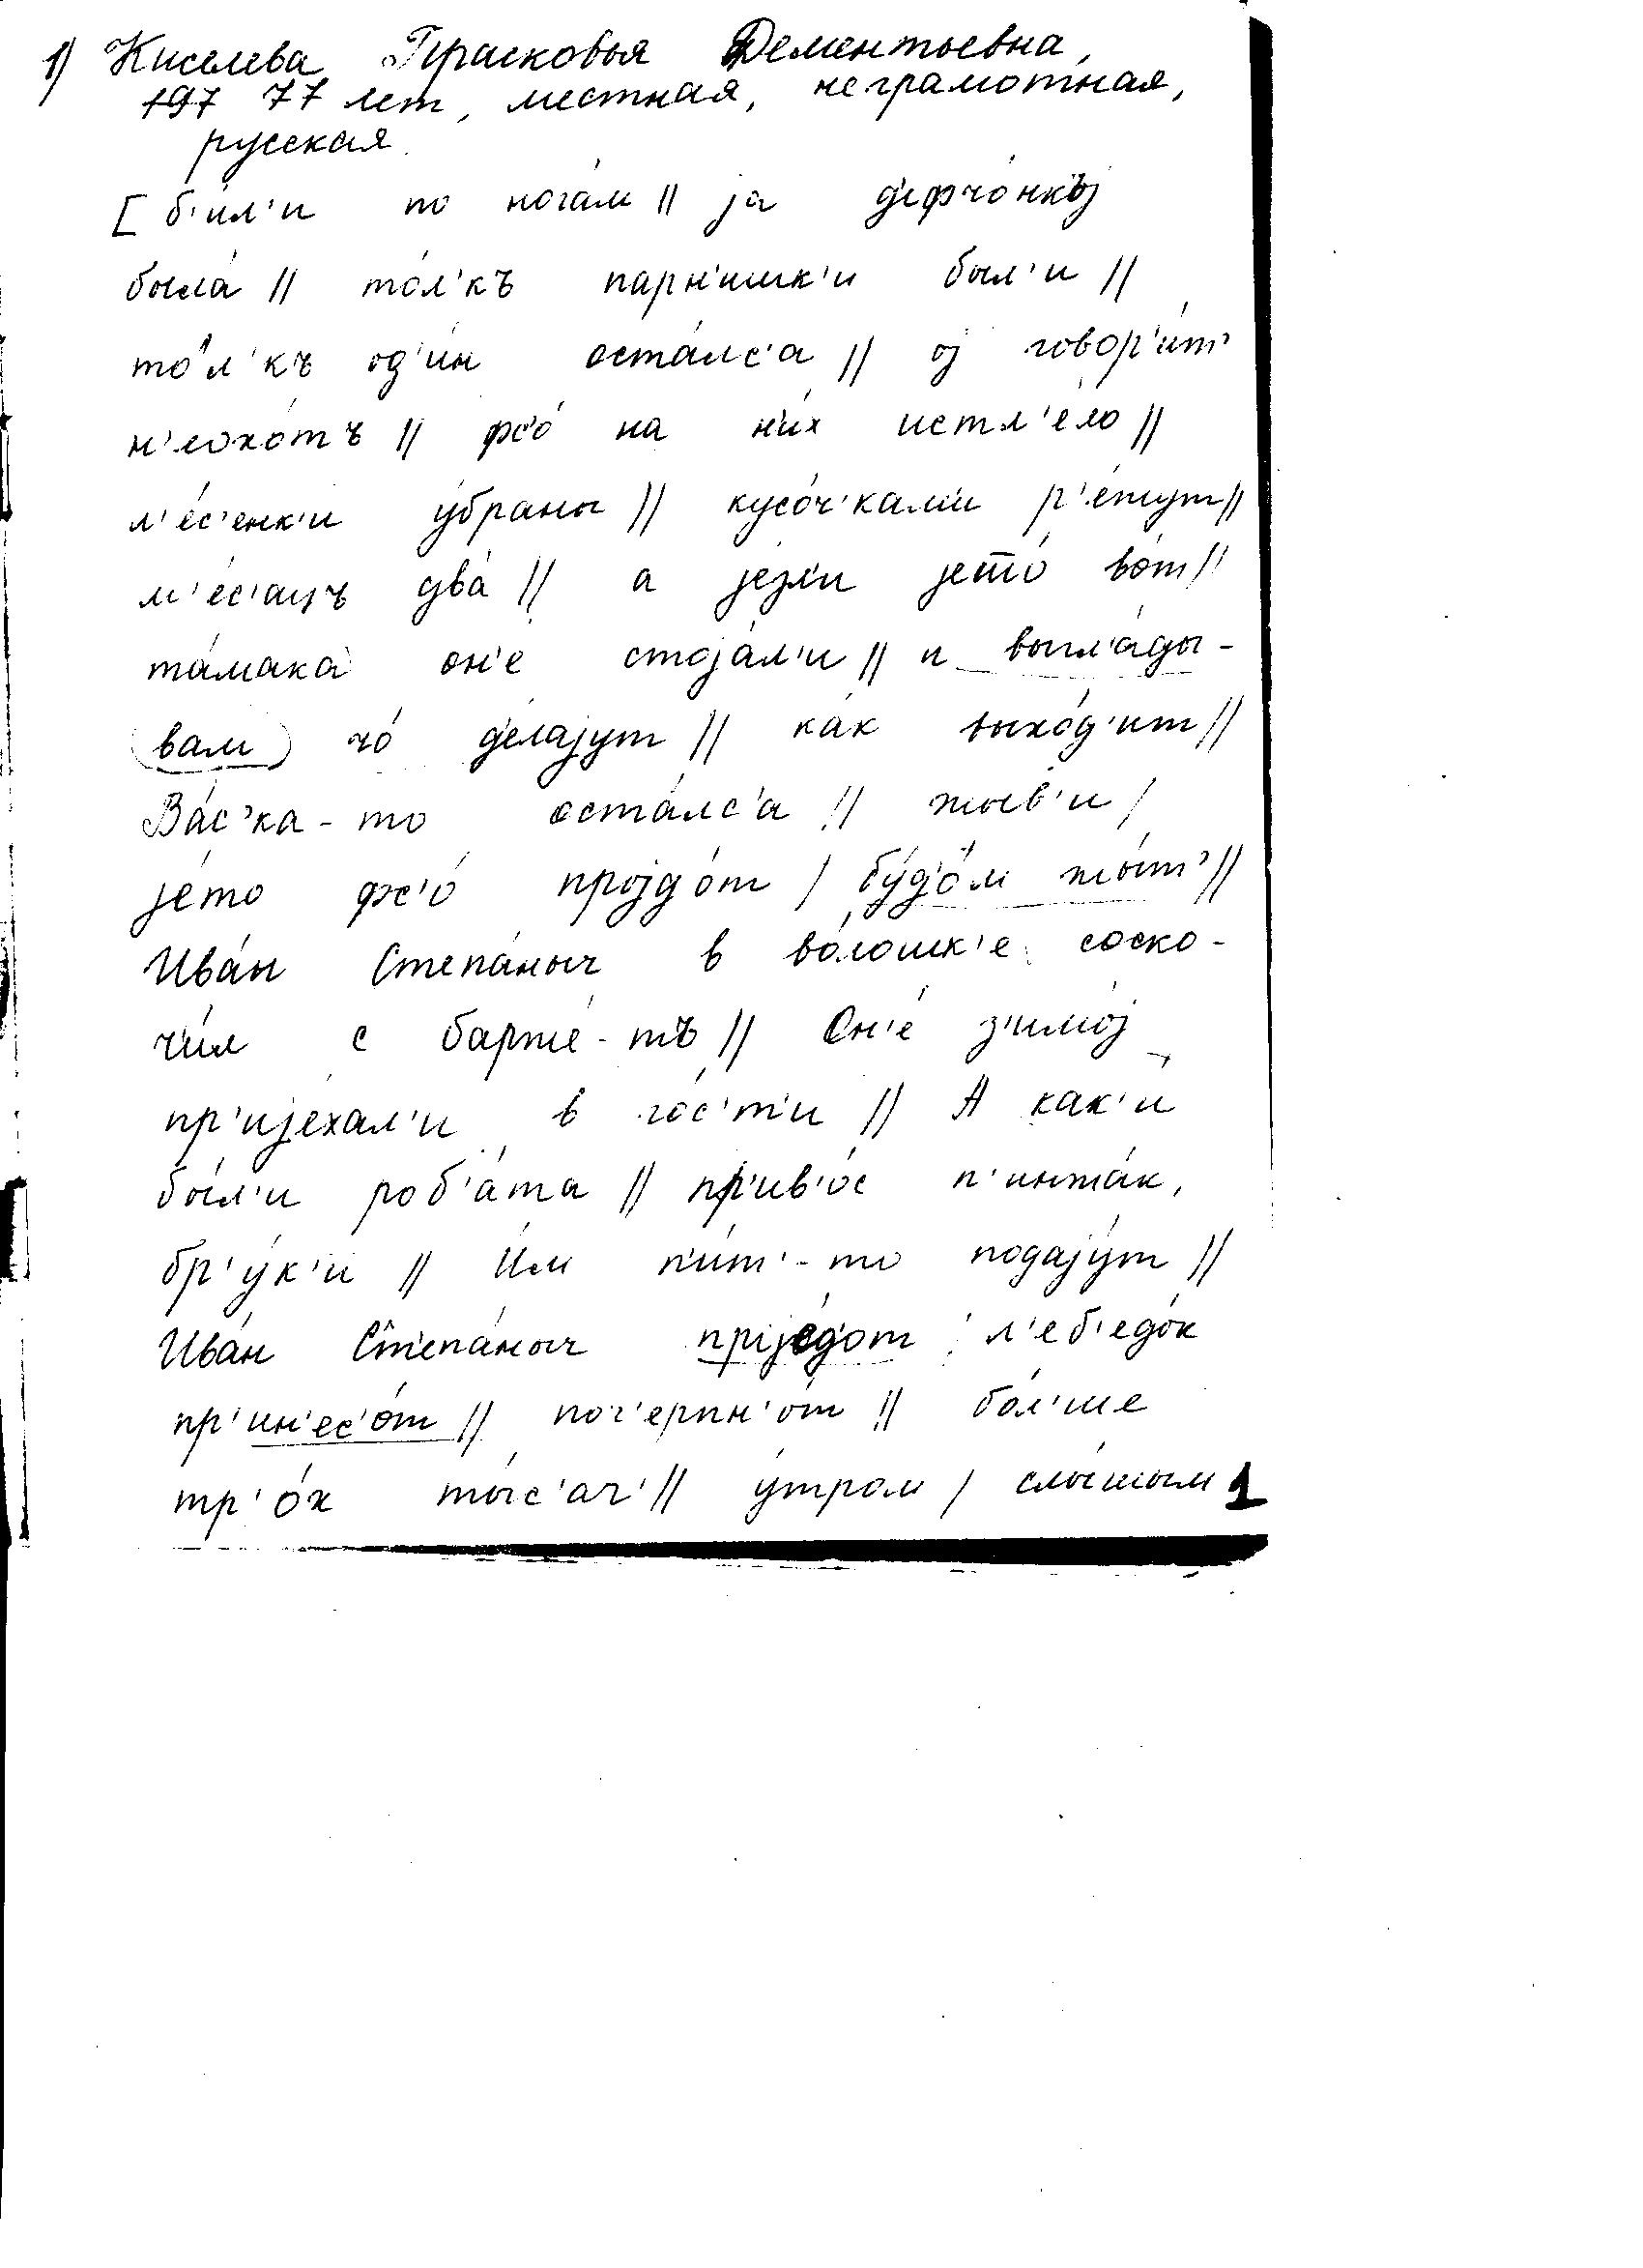 1) Киселева Прасковья Дементьевна,
197 77 лет, местная, неграмотная,
русская.
[ б'и́л'и по нога́м // jа д'ефчо́нкъj
была́ // то́л'къ парн'и́шк'и был'и //
то́л'къ од'и́н оста́лс'а // оj говор'и́т'
н'еохо́тъ // фс'о́ на н'и́х истл'е́ло //
л'е́с'енк'и у́браны // кусо́ч'кам'и р'е́жут //
м'е́с'ацъ два́ // а jе́зл'и jето́ во́т //
та́мака он'е́ стоjа́л'и // и выгл'а́ды-
вам чо́ д'е́лаjут // ка́к выхо́д'ит //
Ва́с'ка-то оста́лс'а // жыв'и /
jе́то фс'о́ проjдо́т / бу́д'ом жы́т' //
Ива́н Степа́ныч в во́лошк'е соско-
ч'и́л с барже́-тъ // Он'е́ з'имо́j
пр'иjе́хал'и в го́с'т'и // А как'и́
бы́л'и роб'а́та // пр'ив'о́с п'инжа́к,
бр'у́к'и // И́м п'и́т'-то подаjу́т //
Ива́н Ст'епа́ныч прijе́д'от л'еб'едо́к
пр'ин'ес'о́т // поч'ерпн'о́т // бо́л'ше
тр'о́х ты́с'ач' // у́тром / слы́шым 1